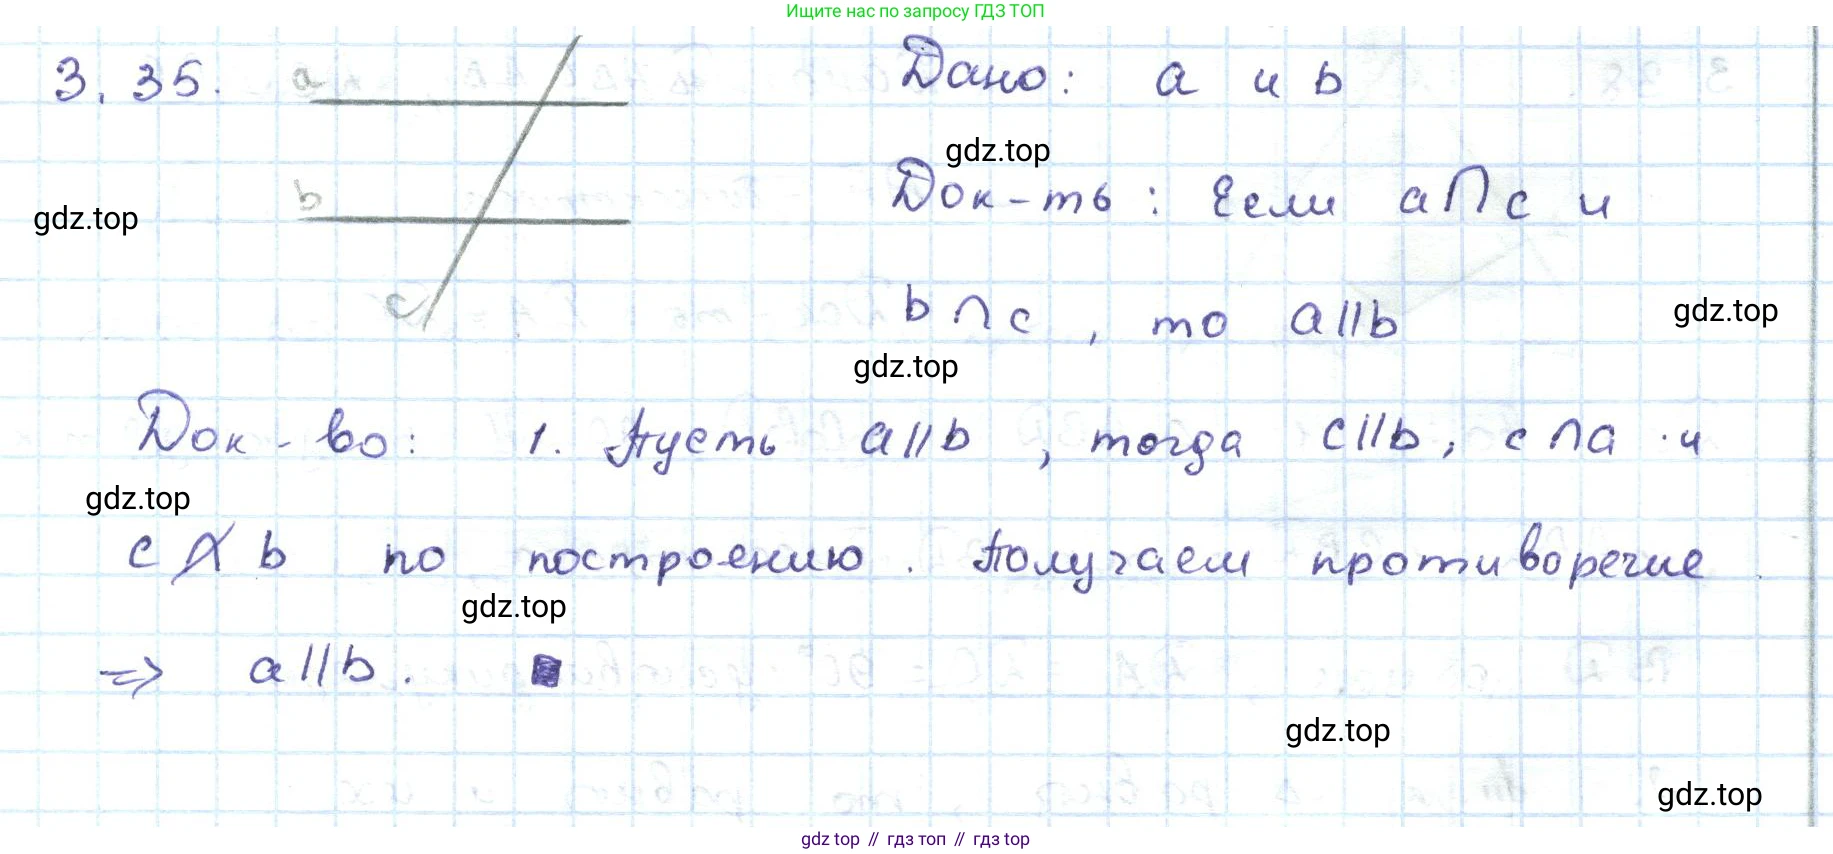 Ищите нас по запросу ГДЗ ТОП
3. 35. a Дано: a и b
gdz.top
b Док-ть: Если a∩c и
gdz.top
c b∩c, то a∥b
gdz.top
gdz.top
Док-во: 1. Пусть a∥b, тогда c∥b, c∩a и
gdz.top
c ∩̸ b по построению. Получаем противоречие
gdz.top
=> a∥b.
gdz.top
gdz.top
gdz top // гдз топ // гдз top